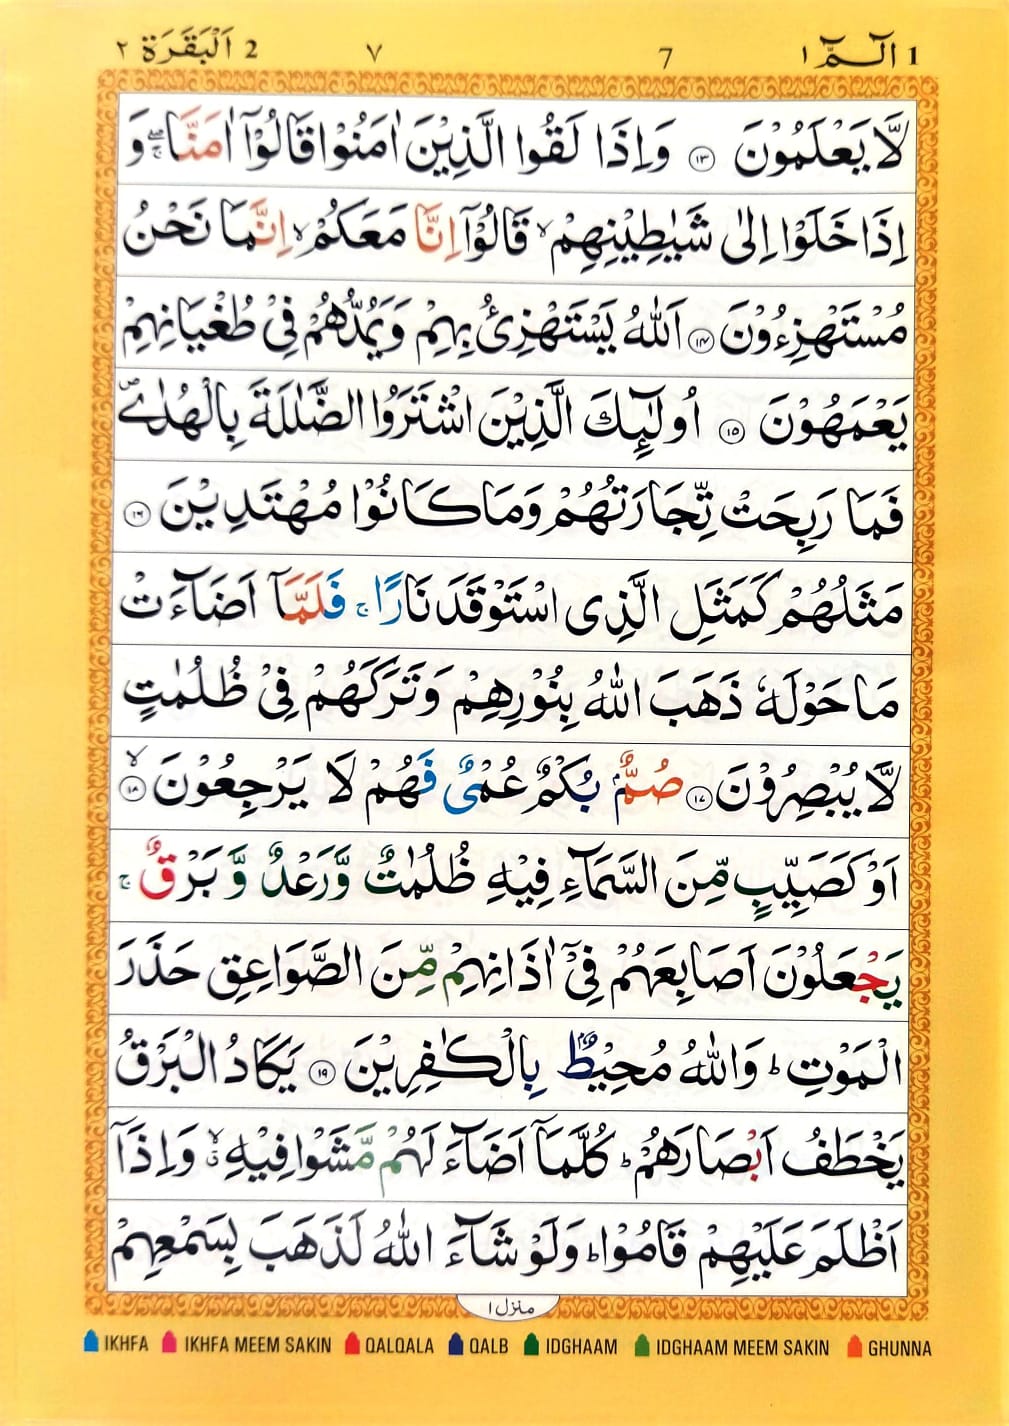 2 اَلْبَقَرَة ٢ ٧ 7 1 الٓـمّٓ ١
لَّا يَعْلَمُوْنَ ١٣ وَاِذَا لَقُوا الَّذِيْنَ اٰمَنُوْا قَالُوْٓا اٰمَنَّا ۖۚ وَ
اِذَا خَلَوْا اِلٰى شَيٰطِيْنِهِمْ ۙ قَالُوْٓا اِنَّا مَعَكُمْ ۙ اِنَّمَا نَحْنُ
مُسْتَهْزِءُوْنَ ١٤ اَللّٰهُ يَسْتَهْزِئُ بِهِمْ وَيَمُدُّهُمْ فِيْ طُغْيَانِهِمْ
يَعْمَهُوْنَ ١٥ اُولٰٓئِكَ الَّذِيْنَ اشْتَرَوُا الضَّلٰلَةَ بِالْهُدٰى ۪
فَمَا رَبِحَتْ تِّجَارَتُهُمْ وَمَا كَانُوْا مُهْتَدِيْنَ ١٦
مَثَلُهُمْ كَمَثَلِ الَّذِى اسْتَوْقَدَ نَارًا ۚ فَلَمَّآ اَضَآءَتْ
مَا حَوْلَهٗ ذَهَبَ اللّٰهُ بِنُوْرِهِمْ وَتَرَكَهُمْ فِيْ ظُلُمٰتٍ
لَّا يُبْصِرُوْنَ ١٧ صُمٌّۢ بُكْمٌ عُمْىٌ فَهُمْ لَا يَرْجِعُوْنَ ۙ ١٨
اَوْ كَصَيِّبٍ مِّنَ السَّمَآءِ فِيْهِ ظُلُمٰتٌ وَّرَعْدٌ وَّبَرْقٌ ۚ
يَجْعَلُوْنَ اَصَابِعَهُمْ فِيْٓ اٰذَانِهِمْ مِّنَ الصَّوَاعِقِ حَذَرَ
الْمَوْتِ ؕ وَاللّٰهُ مُحِيْطٌۢ بِالْكٰفِرِيْنَ ١٩ يَكَادُ الْبَرْقُ
يَخْطَفُ اَبْصَارَهُمْ ؕ كُلَّمَآ اَضَآءَ لَهُمْ مَّشَوْا فِيْهِ ۙۗ وَاِذَآ
اَظْلَمَ عَلَيْهِمْ قَامُوْا ؕ وَلَوْ شَآءَ اللّٰهُ لَذَهَبَ بِسَمْعِهِمْ
منزل ١
IKHFA IKHFA MEEM SAKIN QALQALA QALB IDGHAAM IDGHAAM MEEM SAKIN GHUNNA